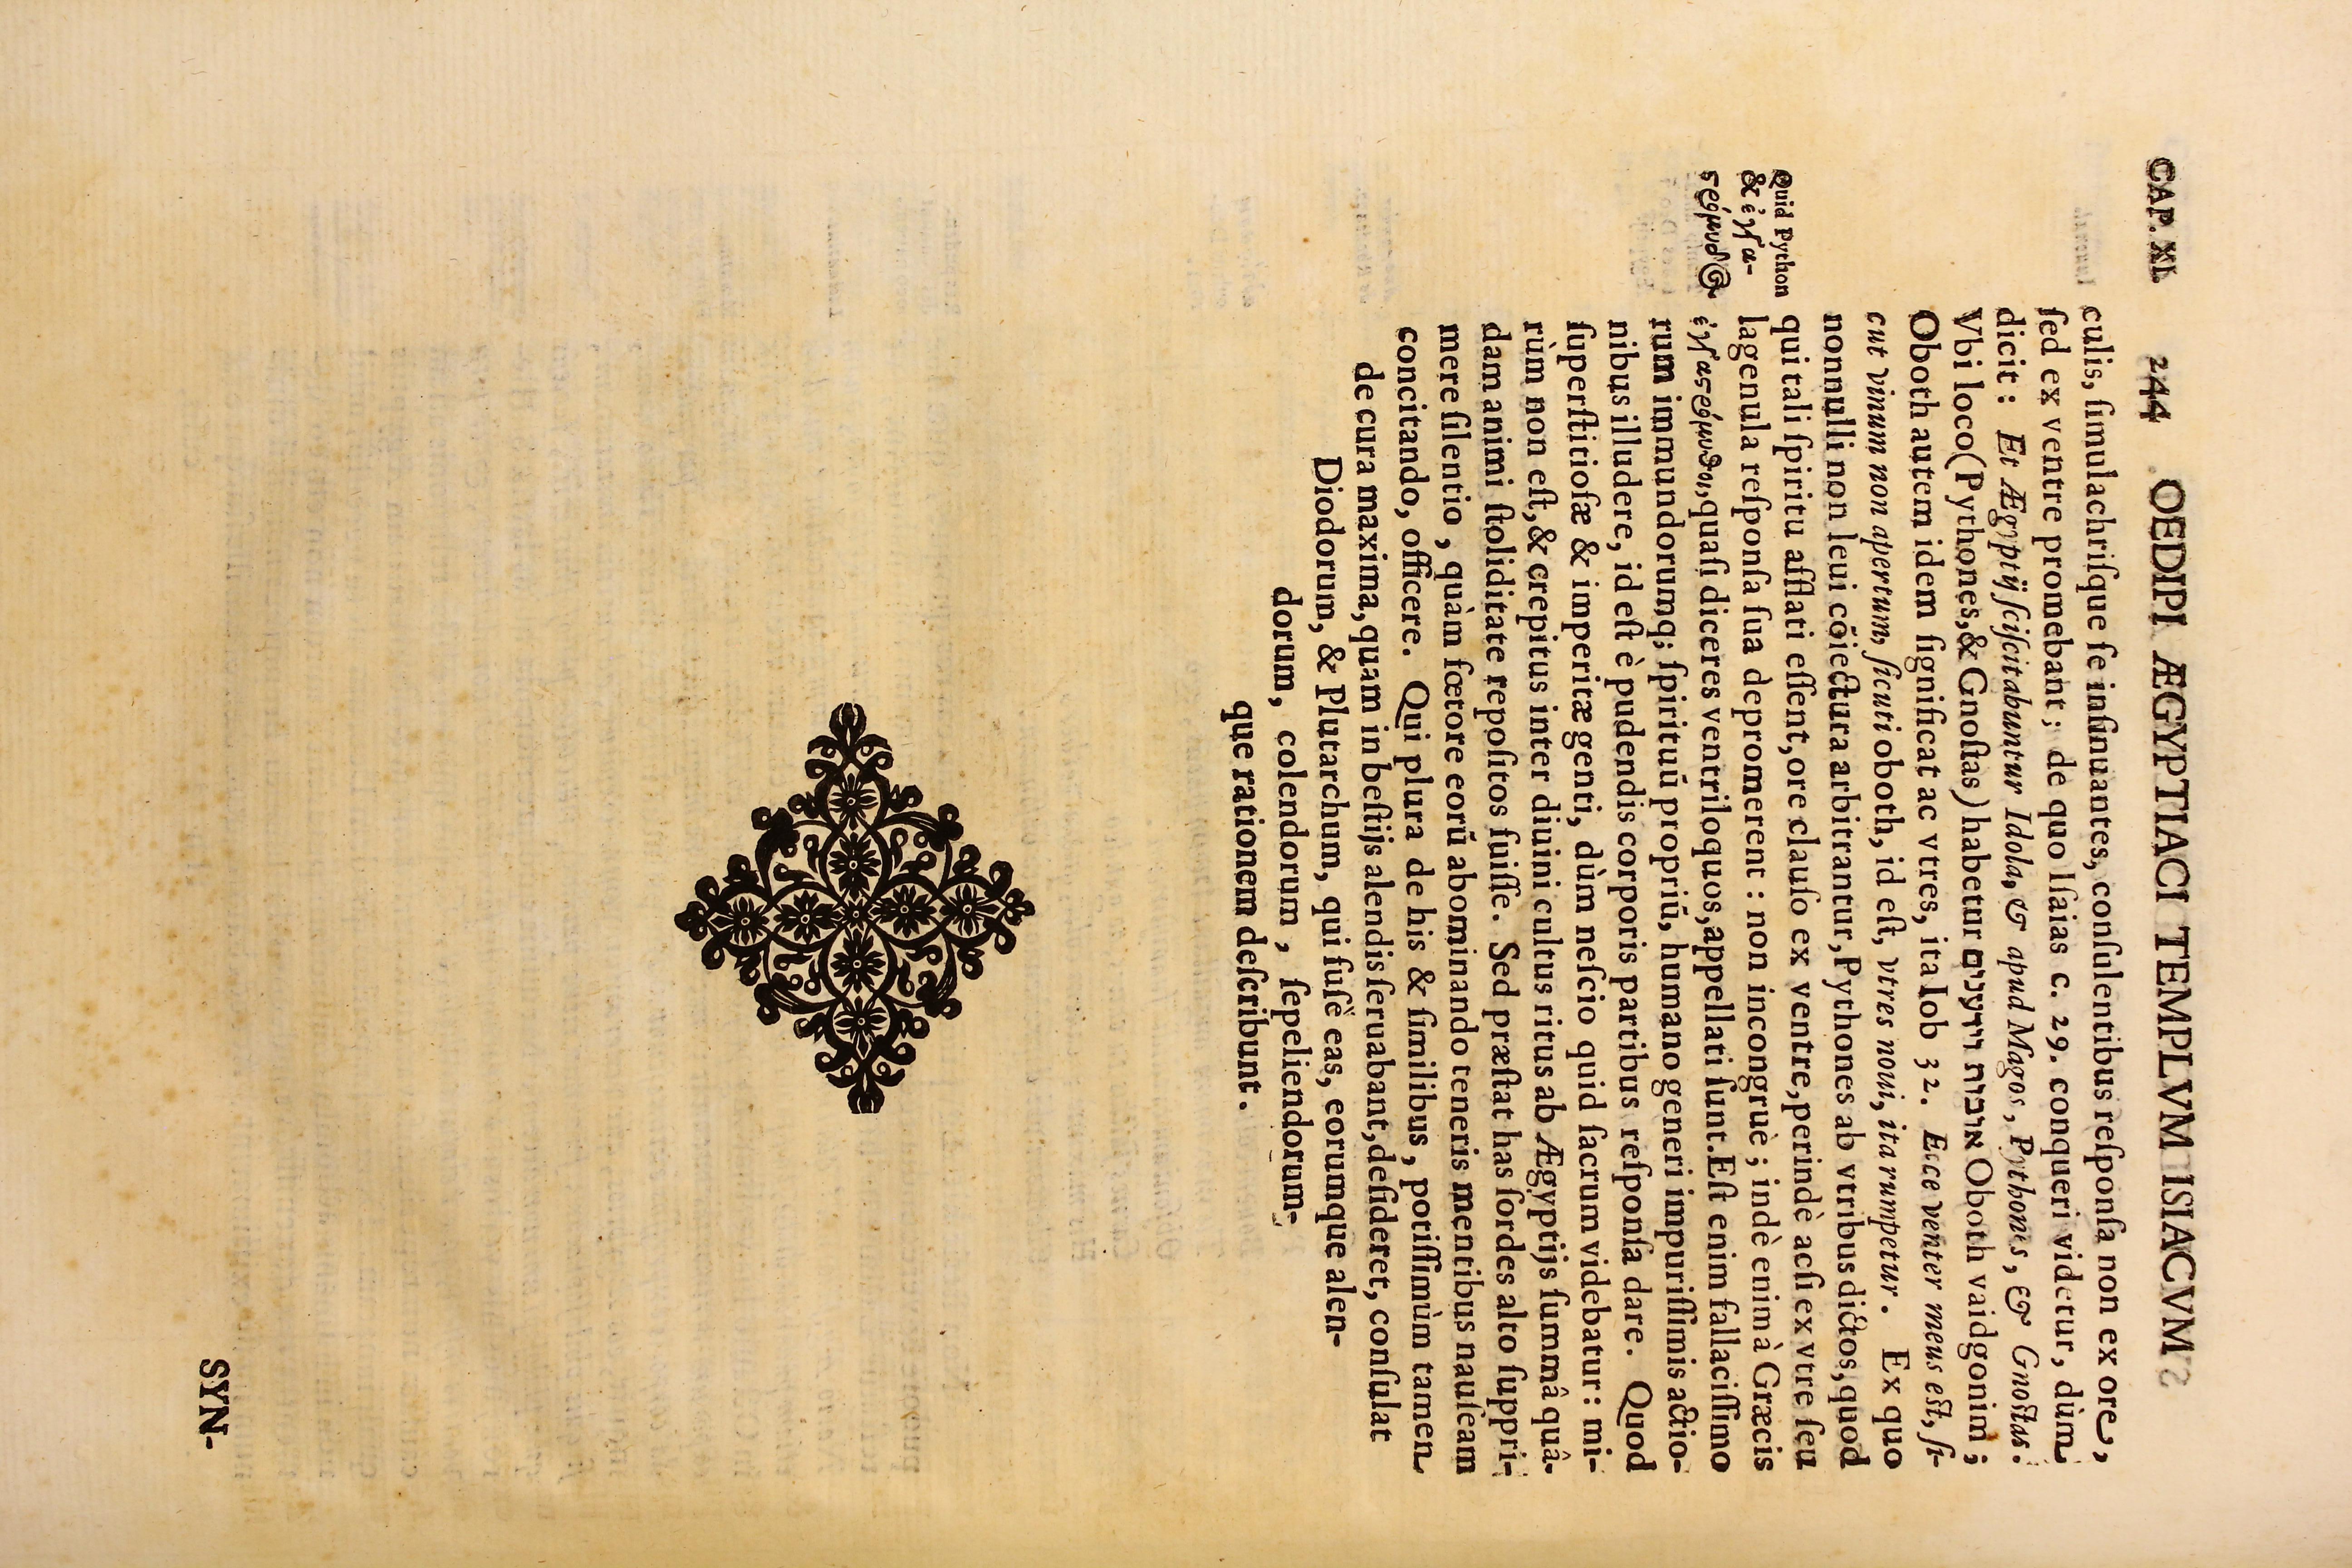 CAP. XI. 244 OEDIPI ÆGYPTIACI TEMPLVM ISIACVM
culis, ſimulachriſque ſe inſinuantes, conſulentibus reſponſa non ex ore,
ſed ex ventre promebant; de quo Iſaias c. 29. conqueri videtur, dùm
dicit: Et Ægyptij ſciſcitabuntur Idola, & apud Magos, Pythonis, & Gnoſtas.
Vbi loco (Pythones, & Gnoſtas) habetur אובות וידענים Oboth vaidgonim;
Oboth autem idem ſignificat ac vtres, ita Iob 32. Ecce venter meus eſt, ſi-
cut vinum non apertum, ſicuti oboth, id eſt, vtres noui, ita rumpetur. Ex quo
nonnulli non leui cõiectura arbitrantur, Pythones ab vtribus dictos, quod
qui tali ſpiritu afflati eſſent, ore clauſo ex ventre, perindè acſi ex vtre ſeu
Quid Python
& ἐγγα-
ςρίμυθ@.
lagenula reſponſa ſua depromerent: non incongruè; indè enim à Græcis
ἐγγαςρίμυθοι, quaſi diceres ventriloquos, appellati ſunt. Eſt enim fallaciſſimo
rum immundorumq; ſpirituũ propriũ, humano generi impuriſſimis actio-
nibus illudere, id eſt è pudendis corporis partibus reſponſa dare. Quod
ſuperſtitioſæ & imperitæ genti, dùm neſcio quid ſacrum videbatur: mi-
rùm non eſt, & crepitus inter diuini cultus ritus ab Ægyptijs ſummâ quâ-
dam animi ſtoliditate repoſitos fuiſſe. Sed præſtat has ſordes alto ſuppri-
mere ſilentio, quàm fœtore eorũ abominando teneris mentibus nauſeam
concitando, officere. Qui plura de his & ſimilibus, potiſſimùm tamen
de cura maxima, quam in beſtijs alendis ſeruabant, deſideret, conſulat
Diodorum, & Plutarchum, qui fuſè eas, eorumque alen-
dorum, colendorum, ſepeliendorum-
que rationem deſcribunt.
SYN-